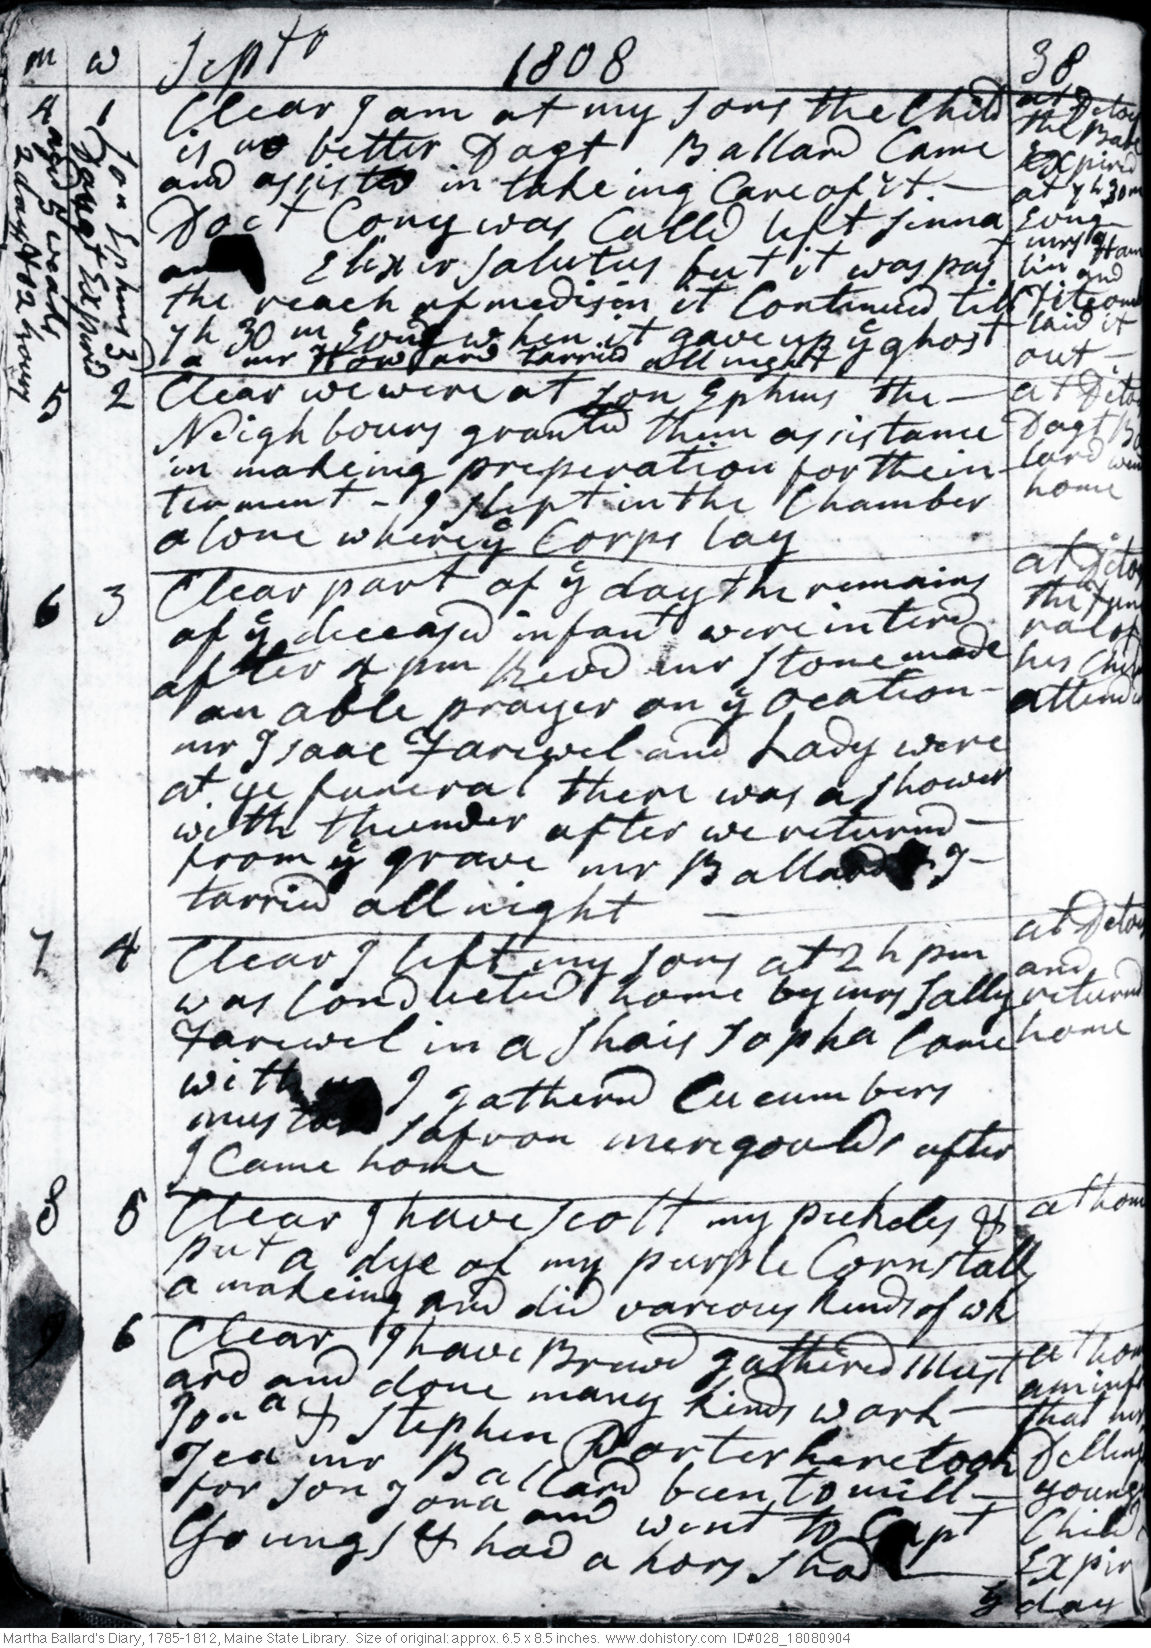 m w Septr 1808 38
4 1 Clear I am at my Sons the Child
is no better Dagt Ballard Came
and assisted in takeing Care of it -
Doct Cony was Calld left Sinna
and Elixir Salutus but it was past
the reach of medisin it Continued till
7 h 30 m Evng when it gave up ye ghost
a mr How and tarried all night
at Ditos
the Babe
Expired
at 7 h 30 m
Evng
mrs
Ham
lin and
Titcomb
laid it
out -
Son Ephms
Daugt Expird
aged 5 weaks
2 days & 2 hours
5 2 Clear we were at Son Ephms the -
Neighbours granted them assistance
in makeing preperation for the in
terment - I slept in the Chamber
alone where ye Corps lay
at Ditos
Dagt Bal
lard went
home
6 3 Clear part of ye day the remains
of ye deceased infant were interd
after 4 pm Revd mr Stone made
an able prayer on ye ocation -
mr Isaac Farewel and Lady were
at ye funeral there was a shower
with thunder after we returnd -
from ye grave mr Ballard & I -
tarried all night -
at Ditos
the fune
ral of
his Child
attended
7 4 Clear I left my Sons at 2 h pm
was Conducted home by mrs Sally
Farewel in a Shais Sopha Came
with us I gathernd Cucumbers
mustard safron meregoulds after
I Came home
at Ditos
and
returnd
home
8 5 Clear I have Scolt my pickels &
put a dye of my purple Cornstalks
a makeing and did various kinds of wk
at home
9 6 Clear I have Brewd gathered Must
ard and done many kinds work -
Jona & Stephen Porter here took
Tea mr Ballard been to mill -
for son Jona and went to Capt
Youngs & had a hors shod -
at home
am inf
that mr
Delling
young
Child
Expird
ye day
Martha Ballard's Diary, 1785-1812, Maine State Library. Size of original: approx. 6.5 x 8.5 inches. www.dohistory.com ID#028_18080904